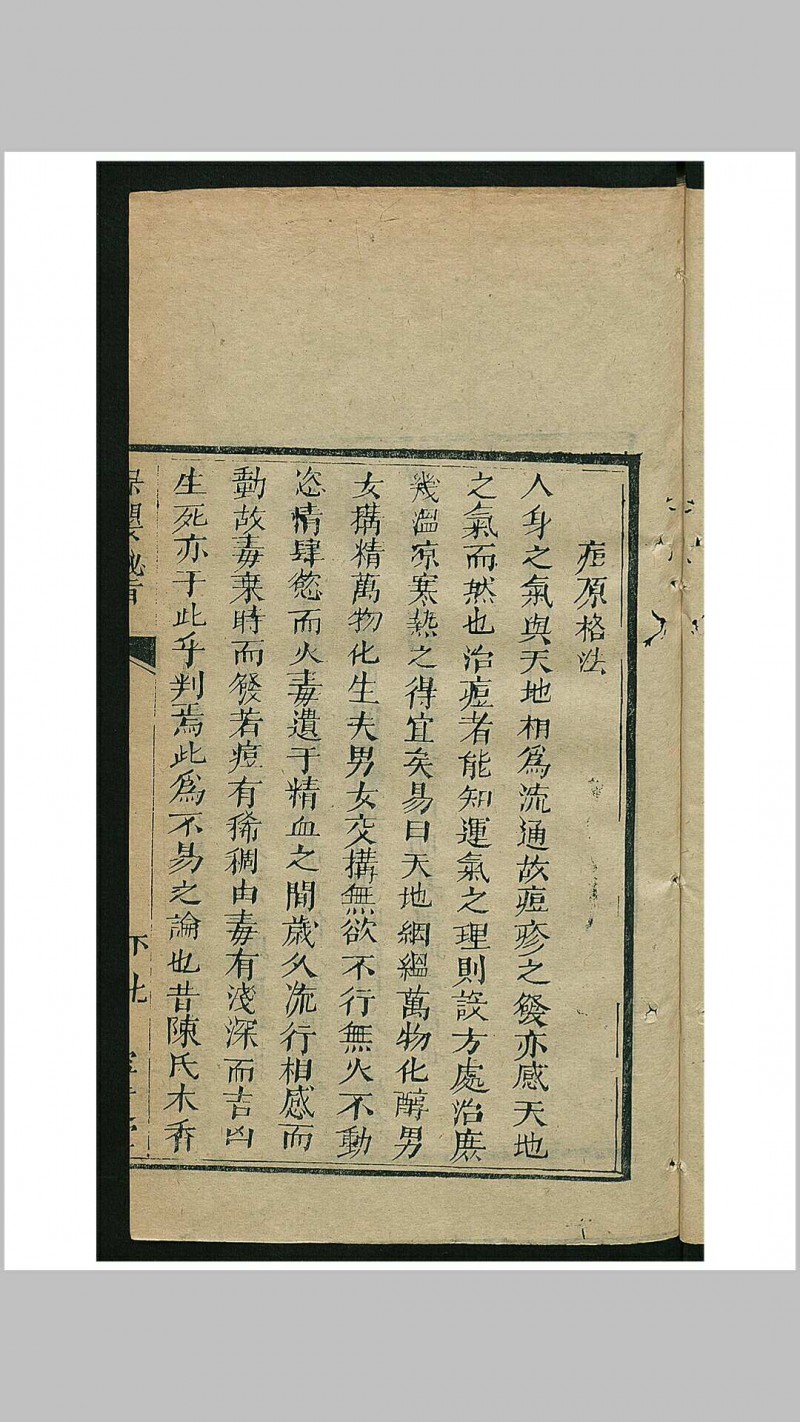 痘原格法
人身之氣與天地相爲流通故痘疹之發亦感天地
之氣而然也治痘者能知運氣之理則設方處治庶
幾溫凉寒熱之得宜矣易曰天地絪縕萬物化醇男
女搆精萬物化生夫男女交搆無欲不行無火不動
恣情肆慾而火毒遺于精血之間歲久流行相感而
動故毒乗時而發若痘有稀稠由毒有淺深而吉凶
生死亦于此乎判焉此爲不易之論也昔陳氏木香
下七